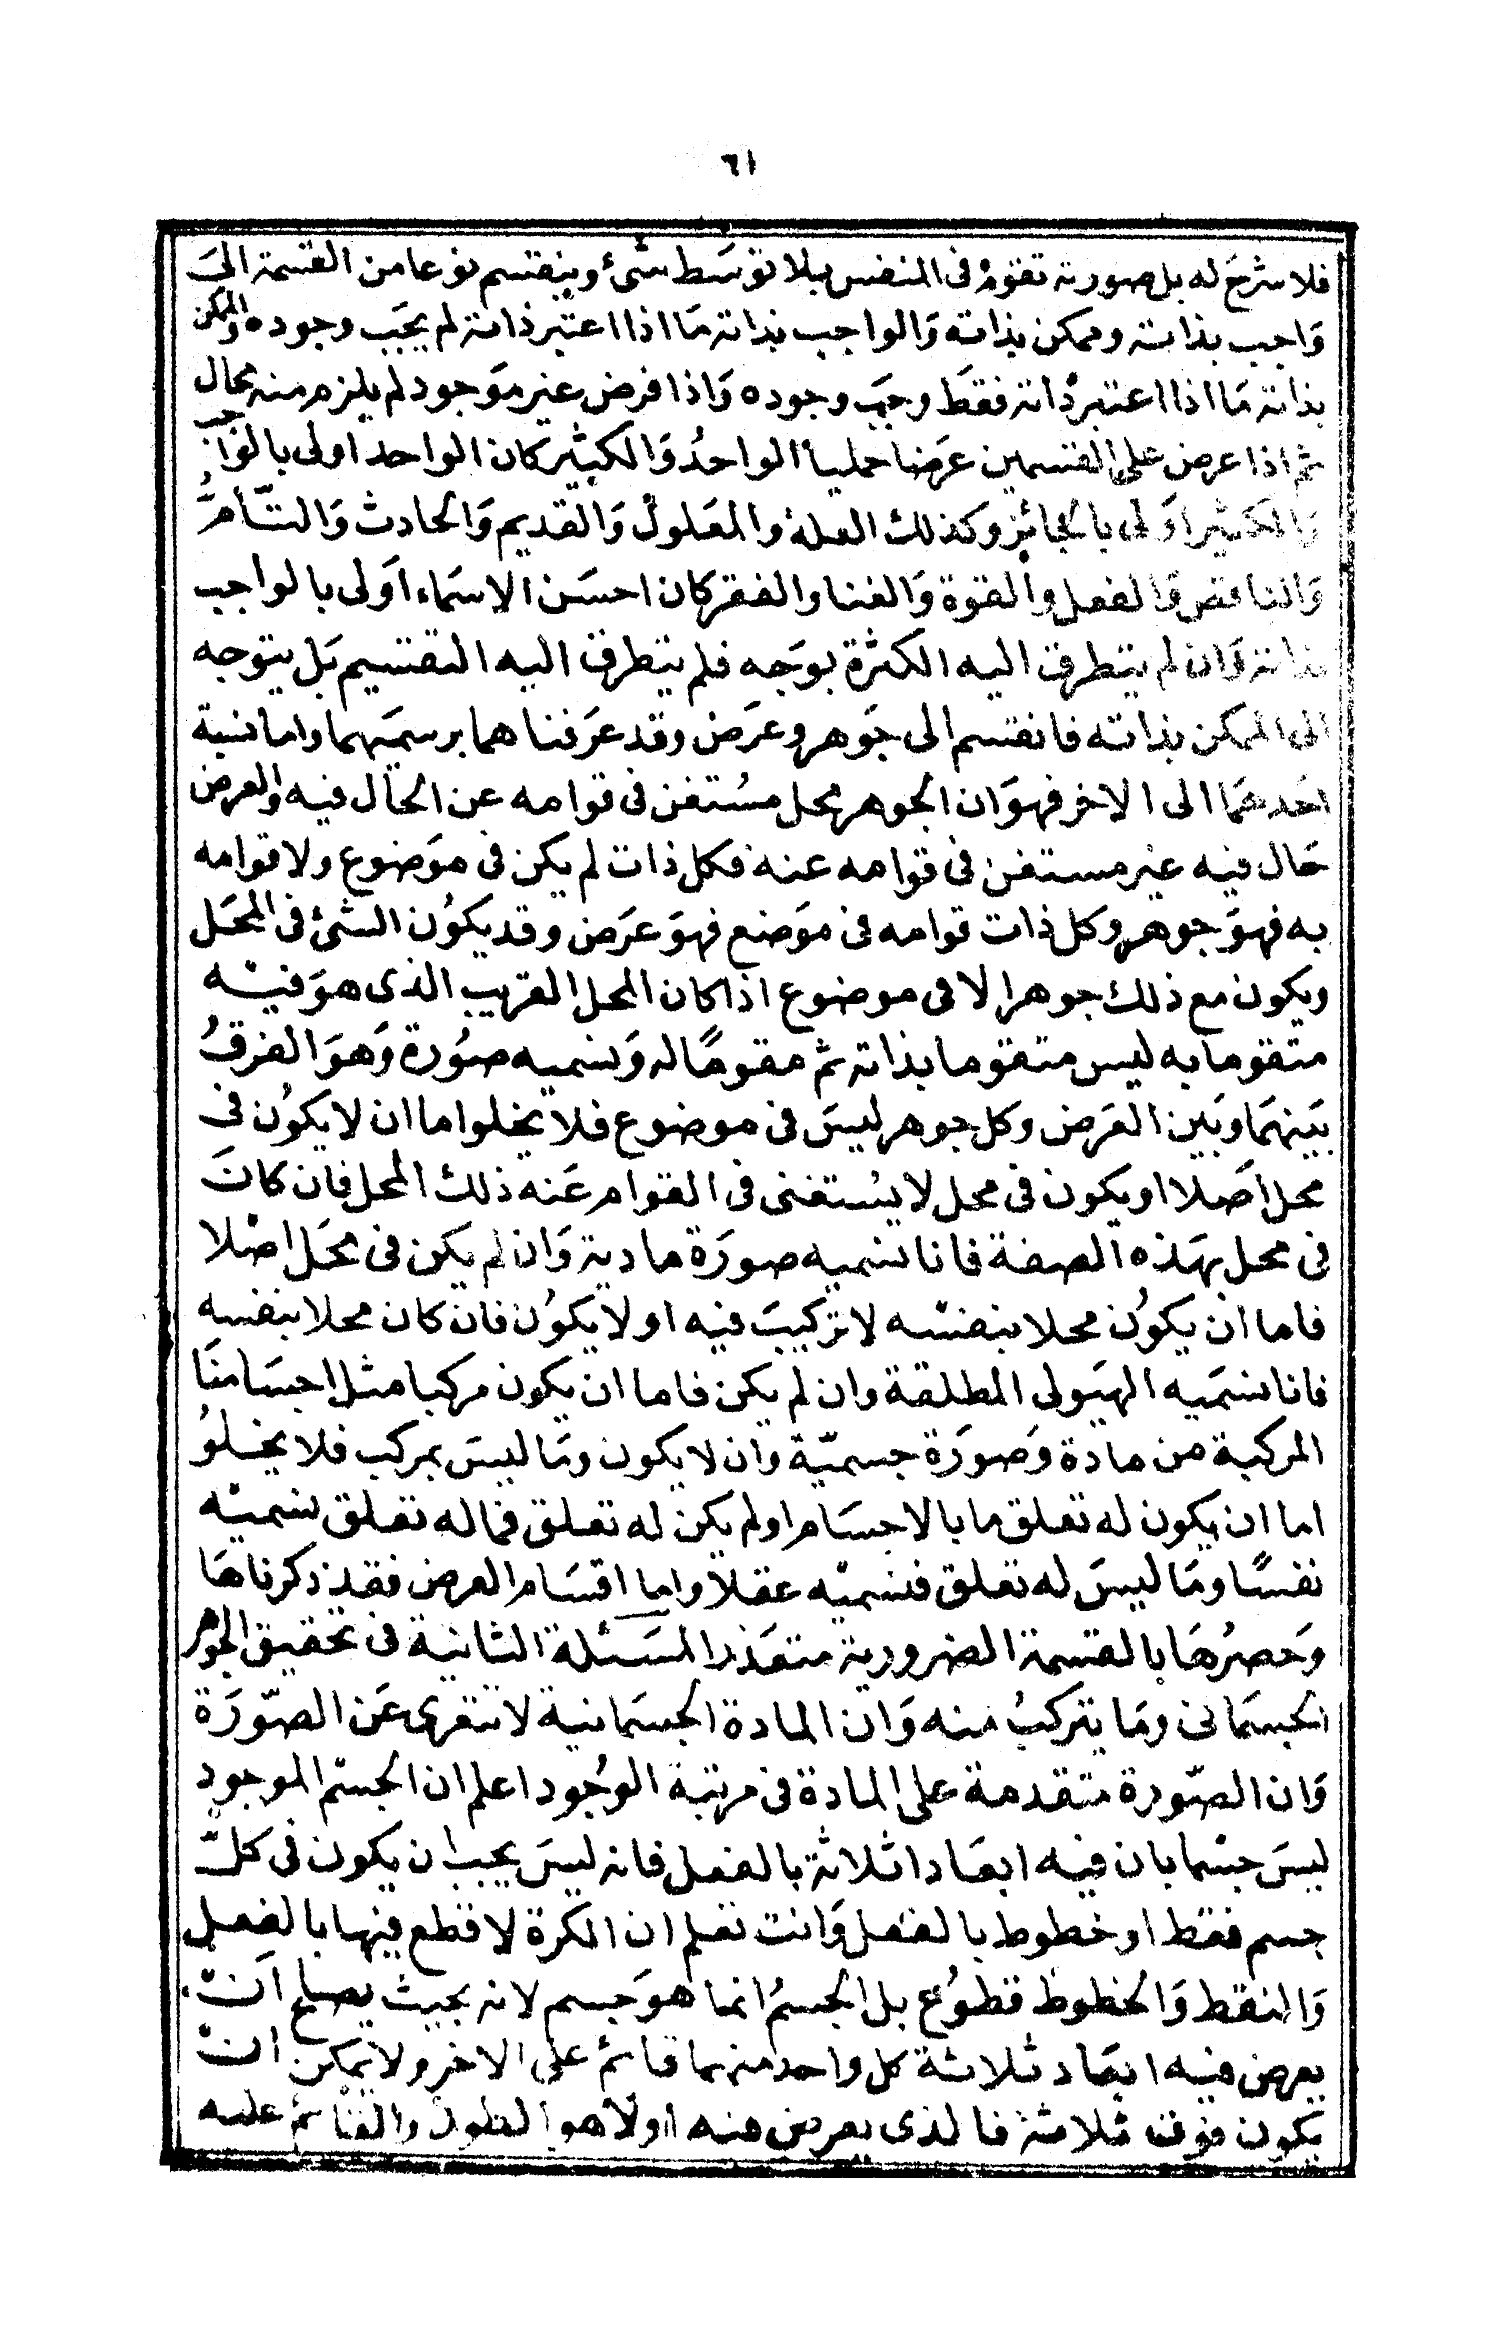 ٦١
فلا شرح له بل صورته تقوم فى النفس بلا توسط شىء وينقسم نوعا من القسمة الى
واجب بذاته وممكن بذاته والواجب بذاته ما اذا اعتبر ذاته لم يجب وجوده والممكن
بذاته ما اذا اعتبر ذاته فقط وجب وجوده واذا فرض غير موجود لم يلزم منه محال
ثم اذا عرض على القسمين عرضا حمليا الواحد والكثير كان الواحد اولى بالواجب
والكثير اولى بالجائز وكذلك العلة والمعلول والقديم والحادث والتام
والناقص والفعل والقوة والغنا والفقر كان احسن الاسماء اولى بالواجب
بذاته وان لم يتطرق اليه الكثرة بوجه فلم يتطرق اليه التقسيم بل يتوجه
الى الممكن بذاته فانقسم الى جوهر وعرض وقد عرفنا هما برسميهما واما نسبة
احدهما الى الاخر فهو ان الجوهر محل مستغن فى قوامه عن الحال فيه والعرض
حال فيه غير مستغن فى قوامه عنه فكل ذات لم يكن فى موضوع ولا قوامه
به فهو جوهر وكل ذات قوامه فى موضع فهو عرض وقد يكون الشئ فى المحل
ويكون مع ذلك جوهرا لا فى موضوع اذا كان المحل القريب الذى هو فيه
متقوما به ليس متقوما بذاته ثم مقوما له ونسميه صورة وهو الفرق
بينهما وبين العرض وكل جوهر ليس فى موضوع فلا يخلوا ما ان لا يكون فى
محل اصلا او يكون فى محل لا يستغنى فى القوام عنه ذلك المحل فان كان
فى محل بهذه الصفة فانا نسميه صورة مادية وان لم يكن فى محل اصلا
فاما ان يكون محلا بنفسه لا تركيب فيه او لا يكون فان كان محلا بنفسه
فانا نسميه الهيولى المطلقة وان لم يكن فاما ان يكون مركبا مثل اجسامنا
المركبة من مادة وصورة جسمية وان لا يكون وما ليس بمركب فلا يخلو
اما ان يكون له تعلق ما بالاجسام او لم يكن له تعلق فما له تعلق نسميه
نفسا وما ليس له تعلق فنسميه عقلا واما اقسام العرض فقد ذكرناها
وحصرها بالقسمة الضرورية متعذر المسئلة الثانية فى تحقيق الجوهر
الجسمانى وما يتركب منه وان المادة الجسمانية لا تتعرى عن الصورة
وان الصورة متقدمة على المادة فى مرتبة الوجود اعلم ان الجسم الموجود
ليس جسما بان فيه ابعادا ثلاثة بالفعل فانه ليس يجب ان يكون فى كل
جسم فقط او خطوط بالفعل وانت تعلم ان الكرة لا قطع فيها بالفعل
والنقط والخطوط قطوع بل الجسم انما هو جسم لانه بحيث يصلح ان
يعرض فيه ابعاد ثلاثة كل واحد منهما قائم على الاخر ولا يمكن ان
يكون فوق ثلاثة فالذى يعرض منه اولا هو الطول والقائم عليه